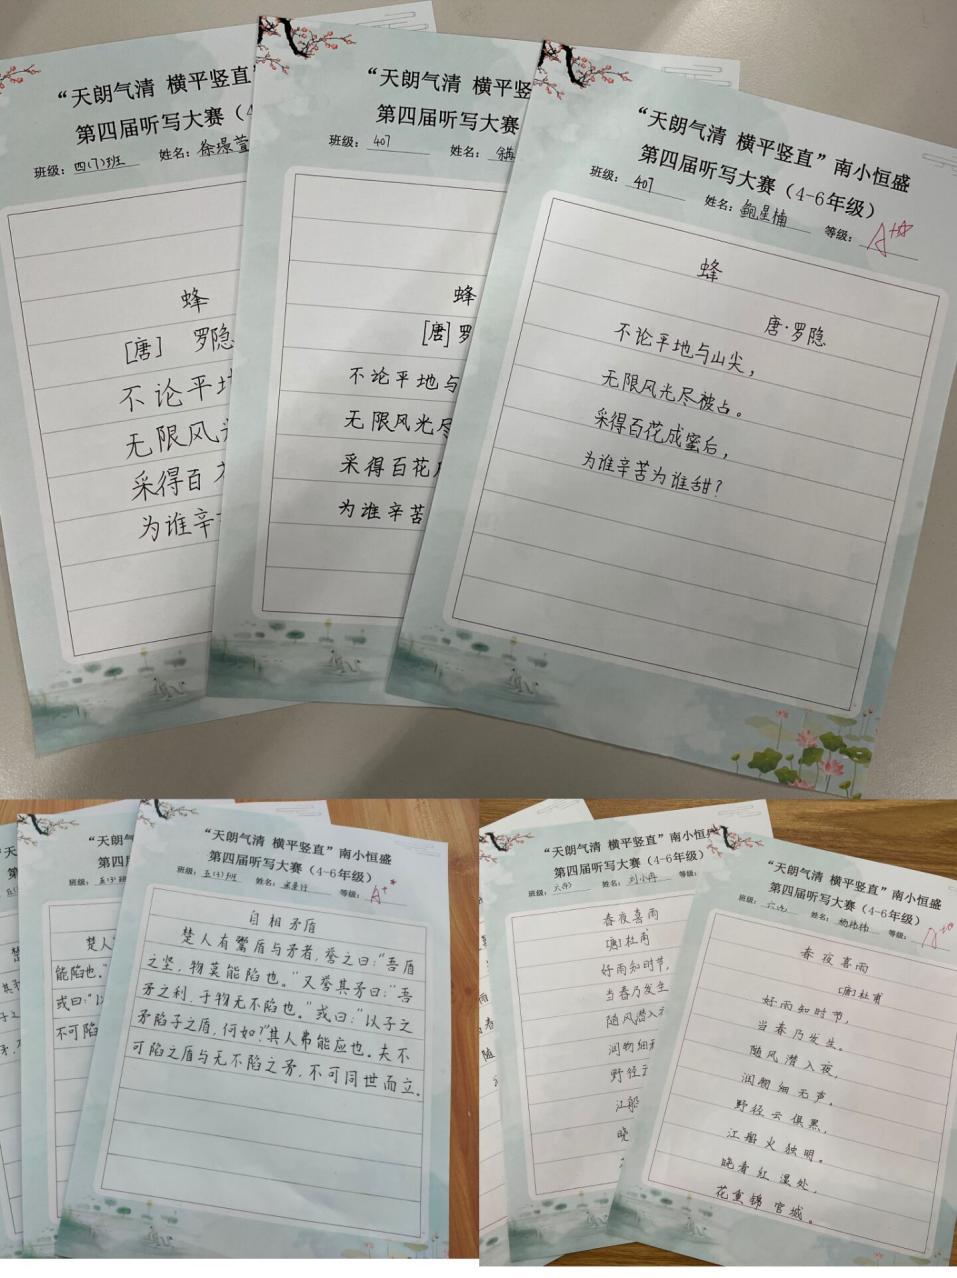 “天朗气清 横平竖直”
第四届听写大赛（4
班级：四(7)班 姓名：徐璟萱
蜂
[唐] 罗隐
不论平地
无限风
采得百
为谁辛
“天朗气清 横平竖
第四届听写大赛
班级：407 姓名：
蜂
[唐]罗
不论平地与
无限风光尽
采得百花
为谁辛苦
“天朗气清 横平竖直”南小恒盛
第四届听写大赛（4-6年级）
班级：407 姓名：鲍星楠 等级：A+
蜂
唐·罗隐
不论平地与山尖，
无限风光尽被占。
采得百花成蜜后，
为谁辛苦为谁甜？
“天朗
第四届
楚人
能陷也。”
或曰：“以
不可陷
“天朗气清 横平竖直”南小恒盛
第四届听写大赛（4-6年级）
班级：五(3)班 姓名： 等级：A+
自相矛盾
楚人有鬻盾与矛者，誉之曰：“吾盾
之坚，物莫能陷也。”又誉其矛曰：“吾
矛之利，于物无不陷也。”或曰：“以子之
矛陷子之盾，何如？”其人弗能应也。夫不
可陷之盾与无不陷之矛，不可同世而立。
“天朗气清 横平竖直”南小恒
第四届听写大赛（4-6年级）
班级： 姓名：刘小冉
春夜喜雨
[唐]杜甫
好雨知时节，
当春乃发生
随风潜入
润物细
野径
江船
晓
“天朗气清 横平竖直”南小恒盛
第四届听写大赛（4-6年级）
班级： 姓名： 等级：A+
春夜喜雨
[唐]杜甫
好雨知时节，
当春乃发生。
随风潜入夜，
润物细无声。
野径云俱黑，
江船火独明。
晓看红湿处，
花重锦官城。